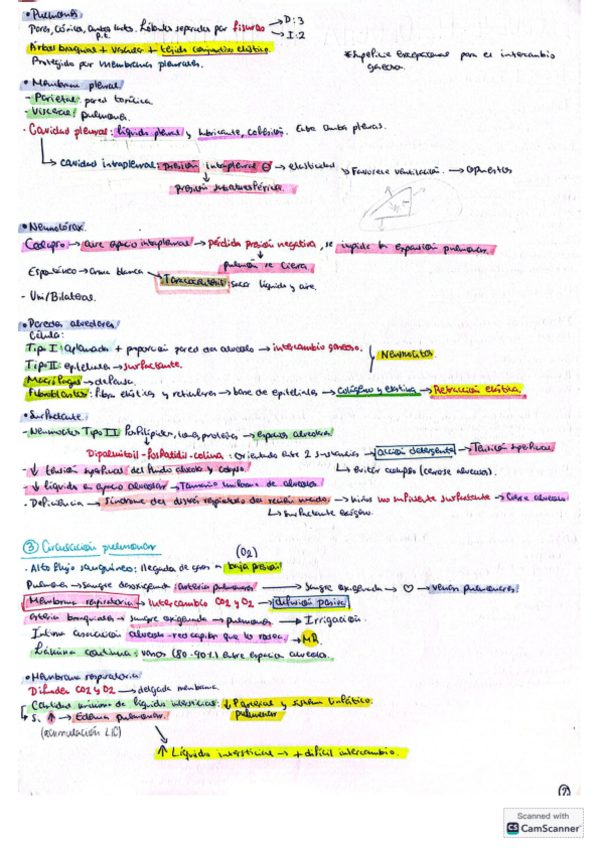 • Pulmones:
Pares, cónicos, Lóbulos separados por fisuras → D: 3
→ I: 2
Árbol bronquial + vascular + tejido conjuntivo elástico.
Protegido por membranas pleurales.
* Superficie excepcional para el intercambio gaseoso.
• Membrana pleural
- Parietal: pared torácica
- Visceral: pulmonar.
· Cavidad pleural: líquido pleural y lubricante, cohesión. Entre ambas pleuras.
→ Cavidad intrapleural: Presión intrapleural ⊖ → elasticidad → Favorece ventilación. → opuestos
Presión subatmosférica.
• Neumotórax:
Colapso → aire espacio intrapleural → pérdida presión negativa, se impide la expansión pulmonar.
pulmón se cierra.
Espontáneo → arma blanca → Toracocentesis: saca líquido y aire.
- Uni/Bilateral.
• Paredes alveolares
Célula:
Tipo I: aplanada + proporción pared del alveolo → intercambio gaseoso.
Neumocitos.
Tipo II: epiteliales → surfactante.
Macrófagos → defensa.
Fibroblastos: fibra elástica y reticulares → base de epiteliales → colágeno y elastina → Retracción elástica.
• Surfactante:
- Neumocitos Tipo II: Fosfolípidos, iones, proteínas → espacios alveolar.
Dipalmitoil-fosfatidil-colina: orientado entre 2 sustancias → acción detergente → Tensión superficial
- ↓ tensión superficial del fluido alveolar y colapso. → Evitar colapso (cerrarse alveolos).
- ↓ líquido en espacio alveolar → Tamaño uniforme de alveolos.
· Deficiencia → Síndrome del distrés respiratorio del recién nacido → Niños no suficiente surfactante → Cierre alveolo
→ Surfactante exógeno.
③ Circulación pulmonar
(O2)
· Alto flujo sanguíneo: llegada de gases a baja presión
Pulmonar → sangre desoxigenada: arteria pulmonar → Sangre oxigenada → ♡ → venas pulmonares.
Membrana respiratoria → Intercambio CO2 y O2 → difusión pasiva
arteria bronquiales → sangre oxigenada → pulmones → Irrigación.
Íntima asociación alveolo - red capilar que lo rodea. → MR.
Lámina continua: vasos (80-90%) entre espacios alveolo.
• Membrana respiratoria:
Difunden CO2 y O2 → delgada membrana.
Cantidad mínima de líquido intersticial: ↓ P arterial y sistema linfático.
pulmonar
Si ↑ → Edema pulmonar.
(acumulación LIC)
↑ Líquido intersticial → + difícil intercambio.
Scanned with
CS CamScanner